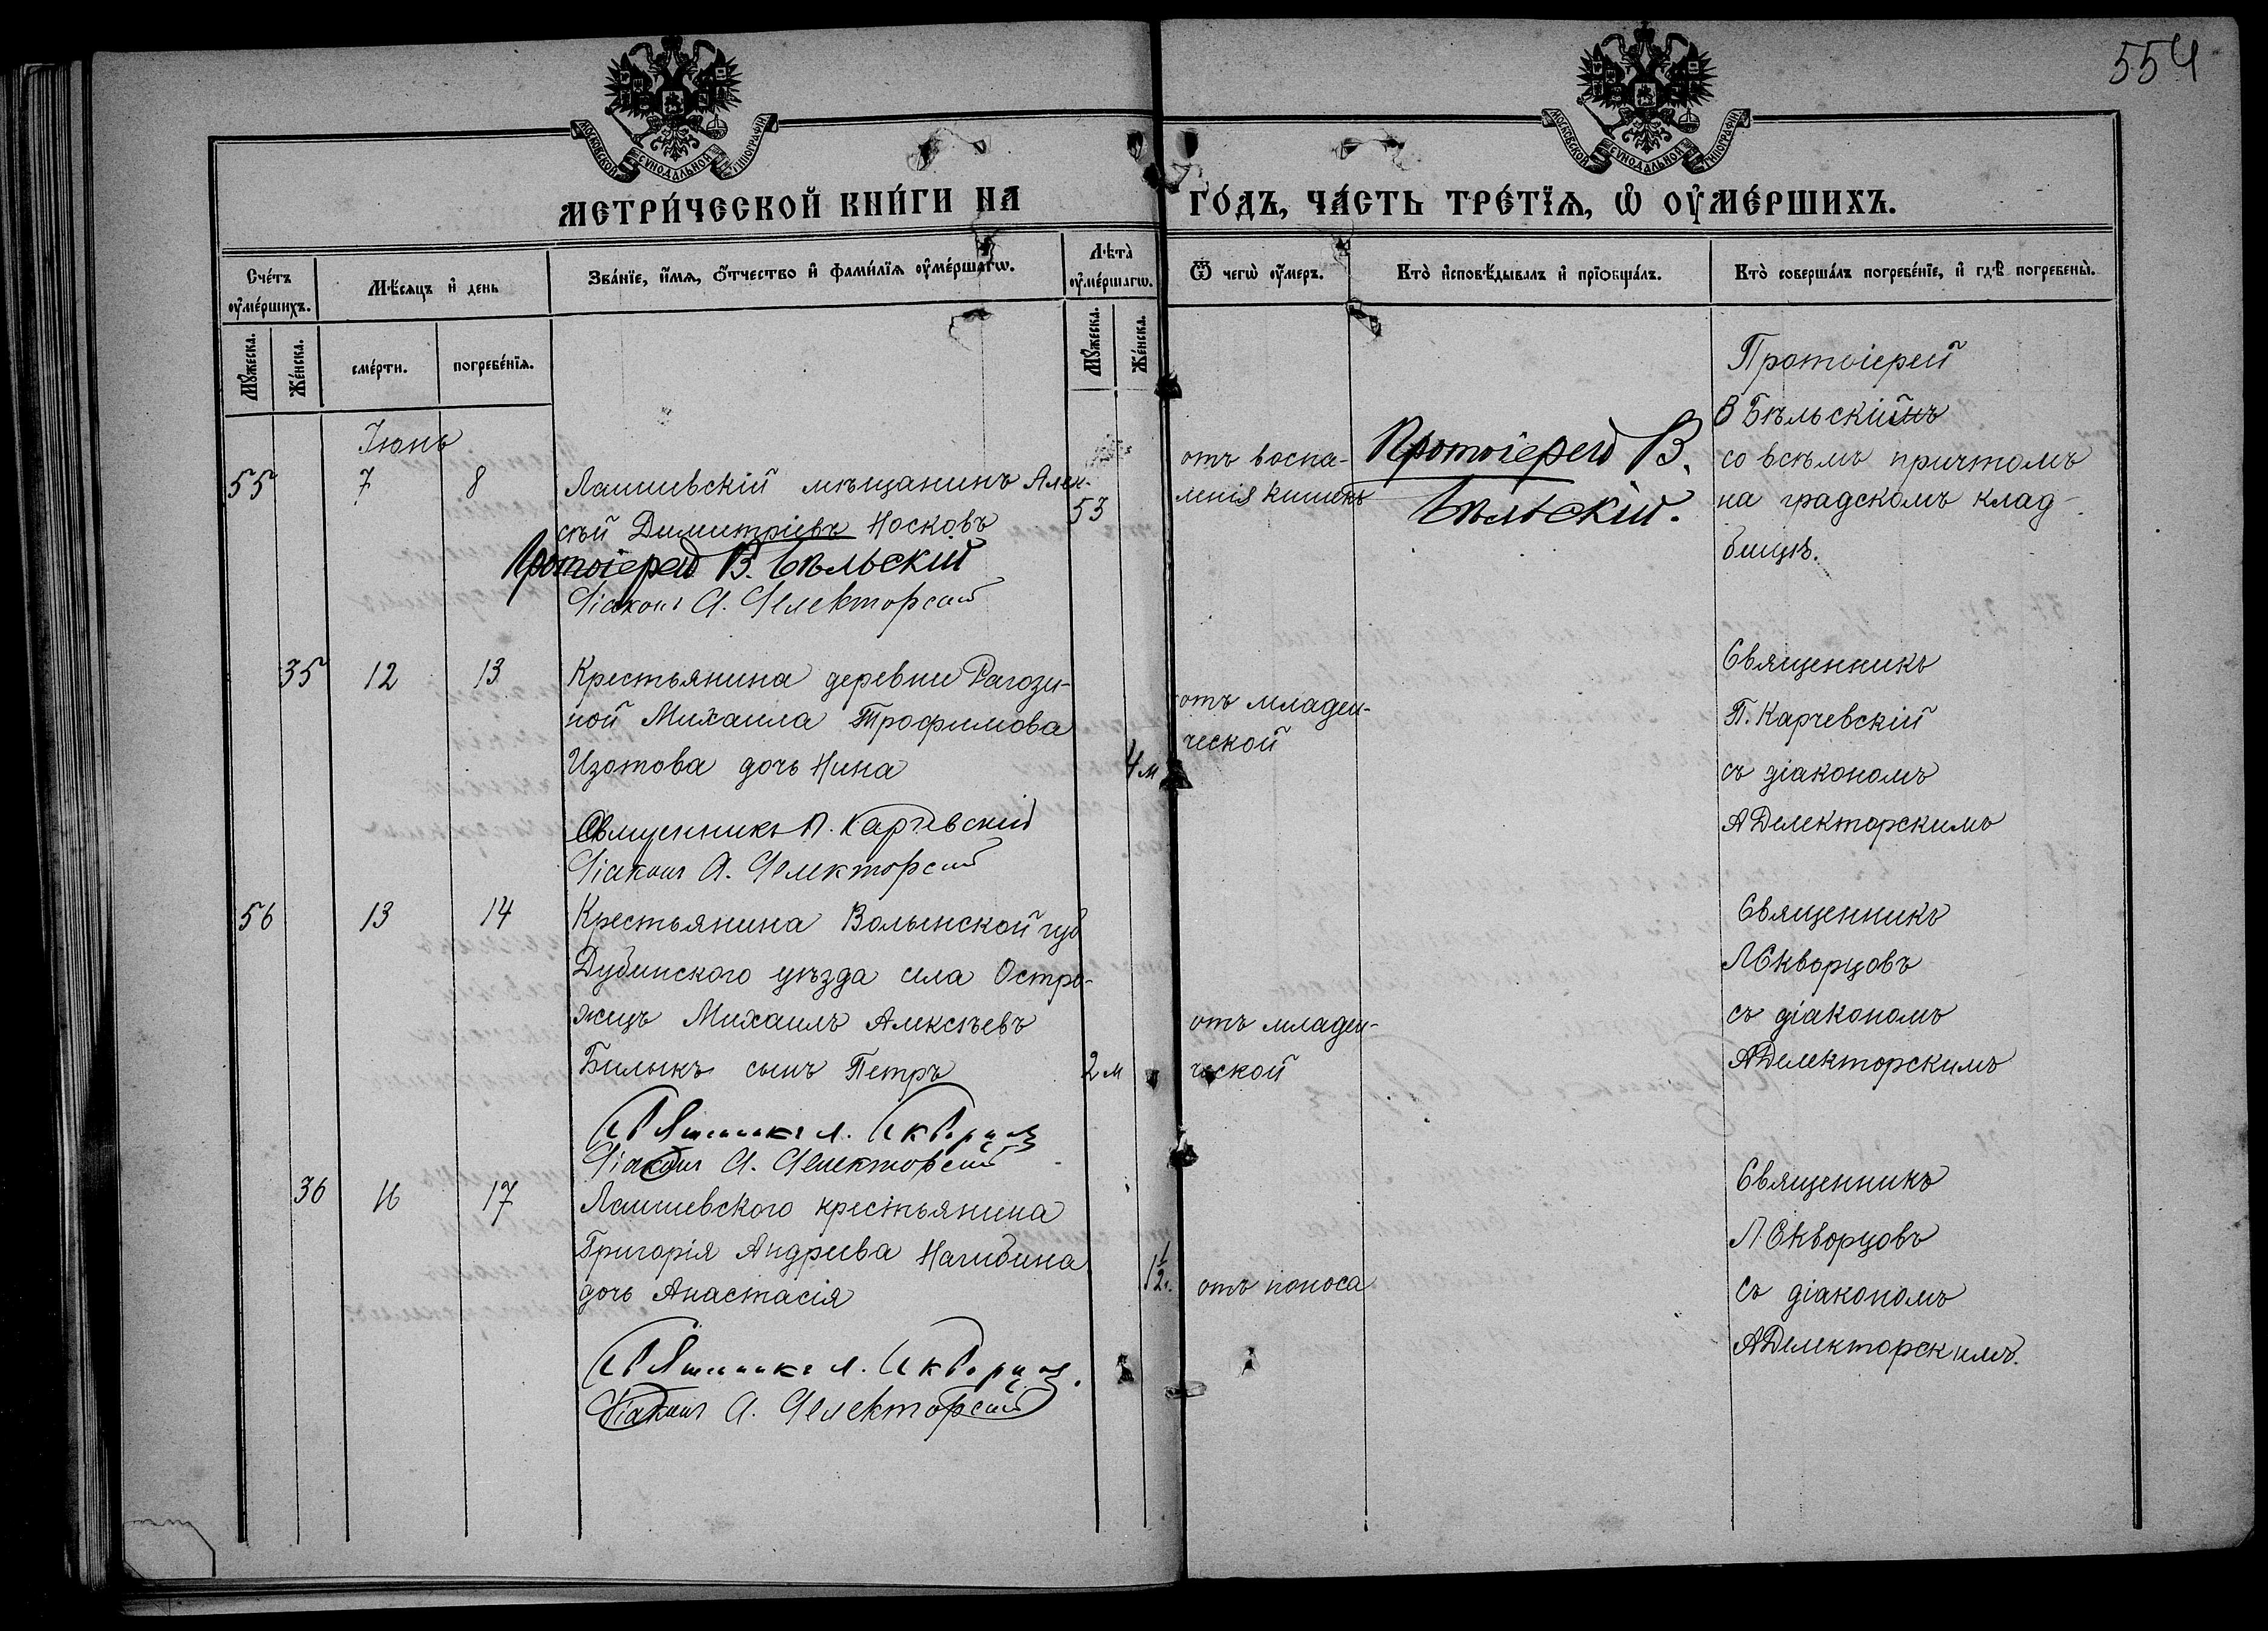 554
МОСКОВСКОЙ СУНОДАЛЬНОЙ ТИПОГРАФІИ
МОСКОВСКОЙ СУНОДАЛЬНОЙ ТИПОГРАФІИ
МЕТРИ́ЧЕСКОЙ КНИ́ГИ НА ГО́ДЪ, ЧА́СТЬ ТРЕ́ТЇѦ, Ѡ҆ ОУ҆МЕ́РШИХЪ.
Сче́тъ оу҆ме́ршихъ.
Мѣ́сяцъ и҆ день
Зва́нїе, и҆́мѧ, ѻ҆́тчество и҆ фами́лїѧ оу҆ме́ршагѡ.
Лѣта̀ оу҆ме́ршагѡ.
Ѿ чегѡ̀ оу҆́меръ.
Кто̀ и҆сповѣ́дывалъ и҆ прїѻбща́лъ.
Кто̀ соверша́лъ погребе́нїе, и҆ гдѣ̀ погребены̀.
Мꙋ́жеска.
Же́нска.
сме́рти.
погребе́нїѧ.
Мꙋ́жеска.
Же́нска.
Іюнь
55 7 8 Лаишевскій мѣщанинъ Алек-
сѣй Димитріевъ Носковъ 53
Протоіерей В. Бѣльскій
Діаконъ А. Делекторскій
отъ воспа-
ленія кишекъ
Протоіерей В.
Бѣльскій.
Протоіерей
В Бѣльскій
со всѣмъ причтомъ
на градскомъ клад-
бищѣ.
35 12 13 Крестьянина деревни Рагози-
ной Михаила Трофимова
Изотова дочь Нина 4 м
Священникъ П. Карчевскій
Діаконъ А. Делекторскій
отъ младен-
ческой
Священникъ
П. Карчевскій
съ діакономъ
А Делекторскимъ
56 13 14 Крестьянина Волынской губ
Дубинского уѣзда села Остро-
жецъ Михаилъ Алексѣевъ
Билыкъ сынъ Петръ 2 м
Священникъ Л. Скворцовъ
Діаконъ А. Делекторскій
отъ младен-
ческой
Священникъ
Л Скворцовъ
съ діакономъ
А Делекторскимъ
36 16 17 Лаишевского крестьянина
Григорія Андреева Нагибина
дочь Анастасія 1 1/2 г.
Священникъ Л. Скворцовъ.
Діаконъ А. Делекторскій
отъ поноса
Священникъ
Л. Скворцовъ
съ діакономъ
А Делекторскимъ.